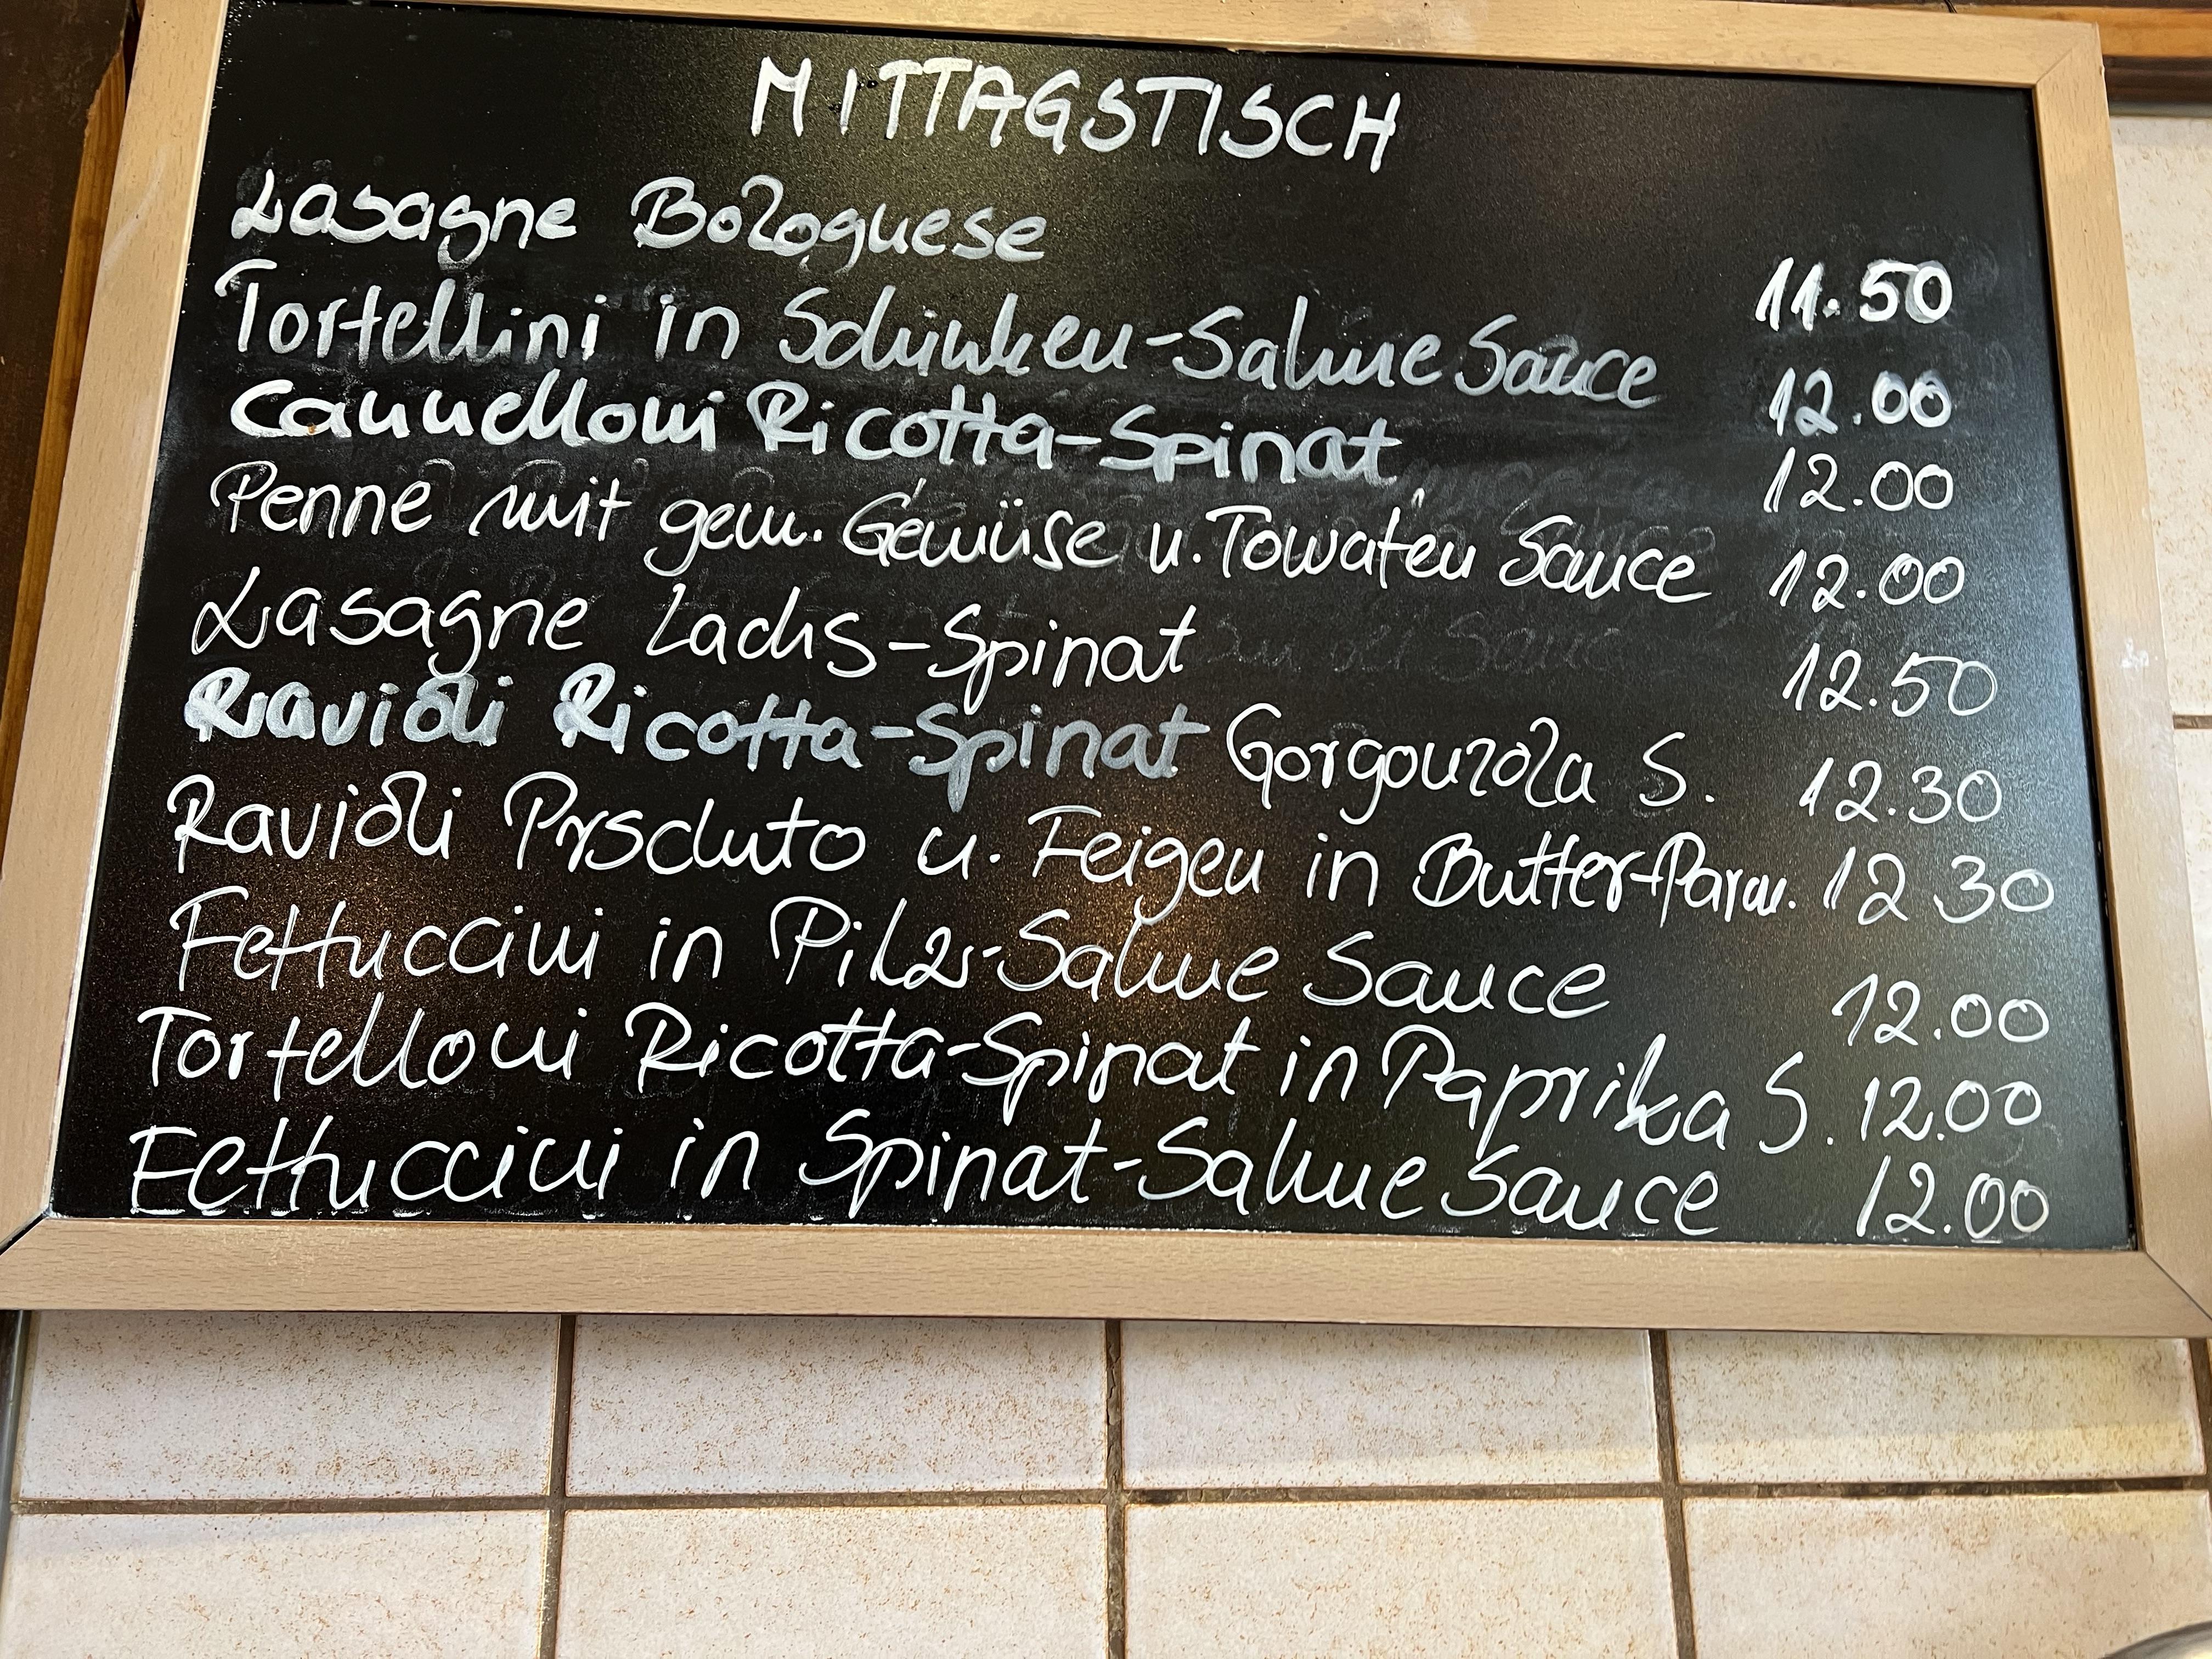 MITTAGSTISCH
Lasagne Bolognese 11.50
Tortellini in Schinken-Sahne Sauce 12.00
Cannelloni Ricotta-Spinat 12.00
Penne mit gem. Gemüse u. Tomaten Sauce 12.00
Lasagne Lachs-Spinat 12.50
Ravioli Ricotta-Spinat Gorgonzola S. 12.30
Ravioli Prschuto u. Feigen in Butter-Parm. 12 30
Fettuccini in Pilz-Sahne Sauce 12.00
Tortelloni Ricotta-Spinat in Paprika S. 12.00
Fettuccini in Spinat-Sahne Sauce 12.00